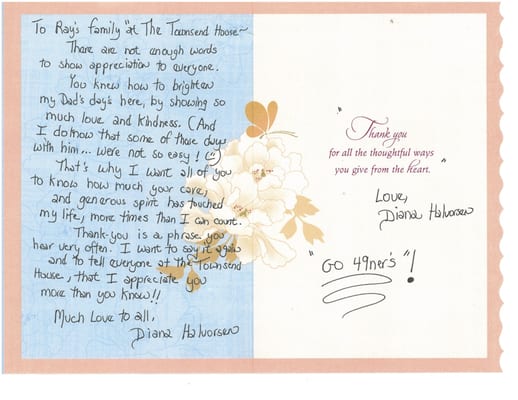 To Ray's family "at The Townsend House~
There are not enough words
to show appreciation to everyone.
You knew how to brighten
my Dad's days here, by showing so
much love and kindness. (And
I do know that some of those days
with him... were not so easy!)
That's why I want all of you
to know how much your care,
and generous spirit has touched
my life, more times than I can count.
Thank-you is a phrase you
hear very often. I want to say it again
and to tell everyone at the Townsend
House, that I appreciate you
more than you know!!
Much Love to all,
Diana Halvorsen
"Thank you
for all the thoughtful ways
you give from the heart."
Love,
Diana Halvorsen
"GO 49ner's"!